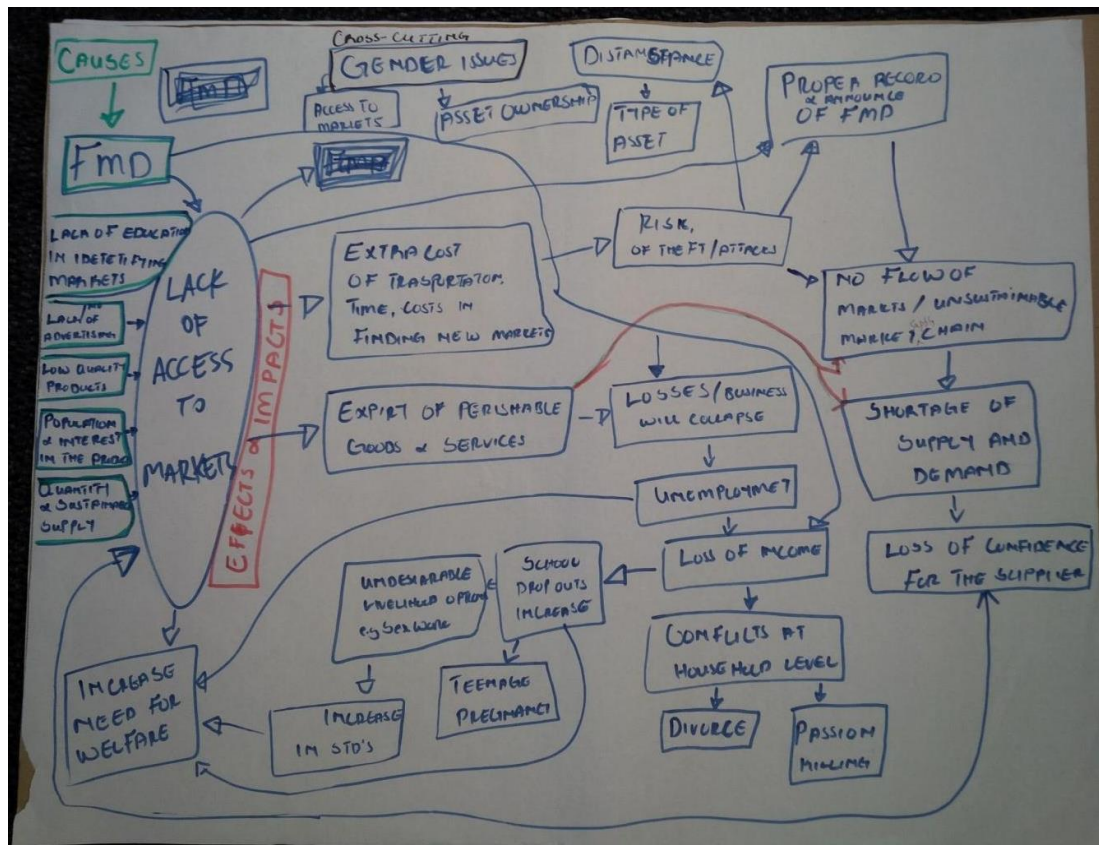 CAUSES
FMD
CROSS-CUTTING
GENDER ISSUES
ACCESS TO
MARKETS
ASSET OWNERSHIP
TYPE OF
ASSET
RECORD
& ANNOUNCE
OF FMD
FMD
LACK OF EDUCATION
IN IDETETIFYING
MARKETS
LACK OF
ADVERTISING
LOW QUALITY
PRODUCTS
POPULATION
& INTEREST
IN THE
QUANTITY
& SUSTAINABLE
SUPPLY
LACK
OF
ACCESS
TO
MARKETS
EFFECTS & IMPACTS
EXTRA COST
OF TRASPORTATION,
TIME, COSTS IN
FINDING NEW MARKETS
RISK,
OF THEFT/ATTACKS
NO FLOW OF
MARKTS/UNSUSTAINABLE
MARKET CHAIN
EXPIRT OF PERISHABLE
GOODS & SERVICES
LOSSES/BUSINESS
WILL COLLAPSE
SHORTAGE OF
SUPPLY AND
DEMAND
UNEMPLOYMET
LOSS OF INCOME
LOSS OF CONFIDENCE
FOR THE SUPPLIER
SCHOOL
DROPOUTS
INCREASE
UNDESIRABLE
e.g SEX WORK
CONFLICTS AT
HOUSEHOLD LEVEL
TEENAGE
INCREASE
IN STD'S
INCREASE
NEED FOR
WELFARE
DIVORCE
PASSION
KILLING